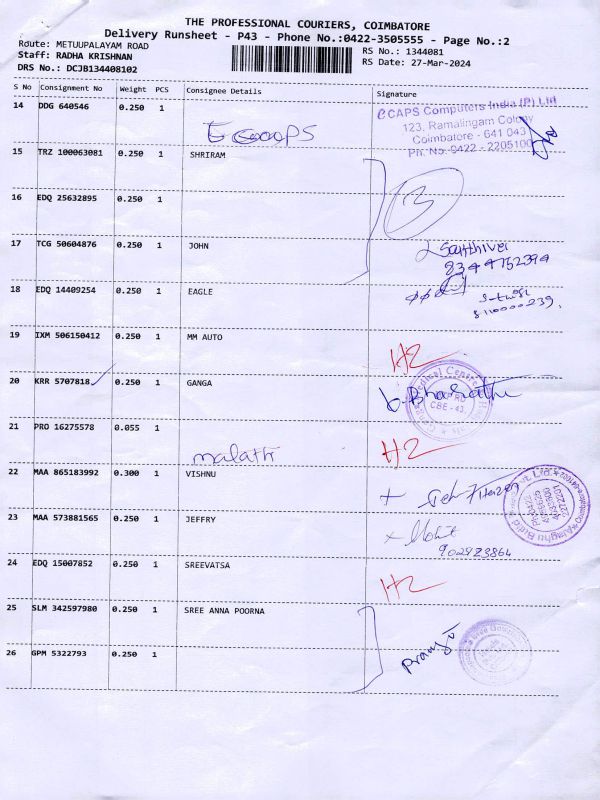 THE PROFESSIONAL COURIERS, COIMBATORE
Delivery Runsheet - P43 - Phone No.:0422-3505555 - Page No.:2
Route: METUUPALAYAM ROAD RS No.: 1344081
Staff: RADHA KRISHNAN RS Date: 27-Mar-2024
DRS No.: DCJB134408102
S No Consignment No Weight PCS Consignee Details Signature
14 DDG 640546 0.250 1
CAPS Computers India (P) Ltd
123, Ramalingam Colony
Coimbatore - 641 043
Ph. No. 0422 - 2205100
15 TRZ 100063081 0.250 1 SHRIRAM
16 EDQ 25632895 0.250 1
3
17 TCG 50604876 0.250 1 JOHN
18 EDQ 14409254 0.250 1 EAGLE
19 IXM 506150412 0.250 1 MM AUTO
H2
20 KRR 5707818 0.250 1 GANGA
b. Bharathi
21 PRO 16275578 0.055 1
malathi H2
22 MAA 865183992 0.300 1 VISHNU
23 MAA 573881565 0.250 1 JEFFRY
Mohit
24 EDQ 15007852 0.250 1 SREEVATSA
H2
25 SLM 342597980 0.250 1 SREE ANNA POORNA
26 GPM 5322793 0.250 1